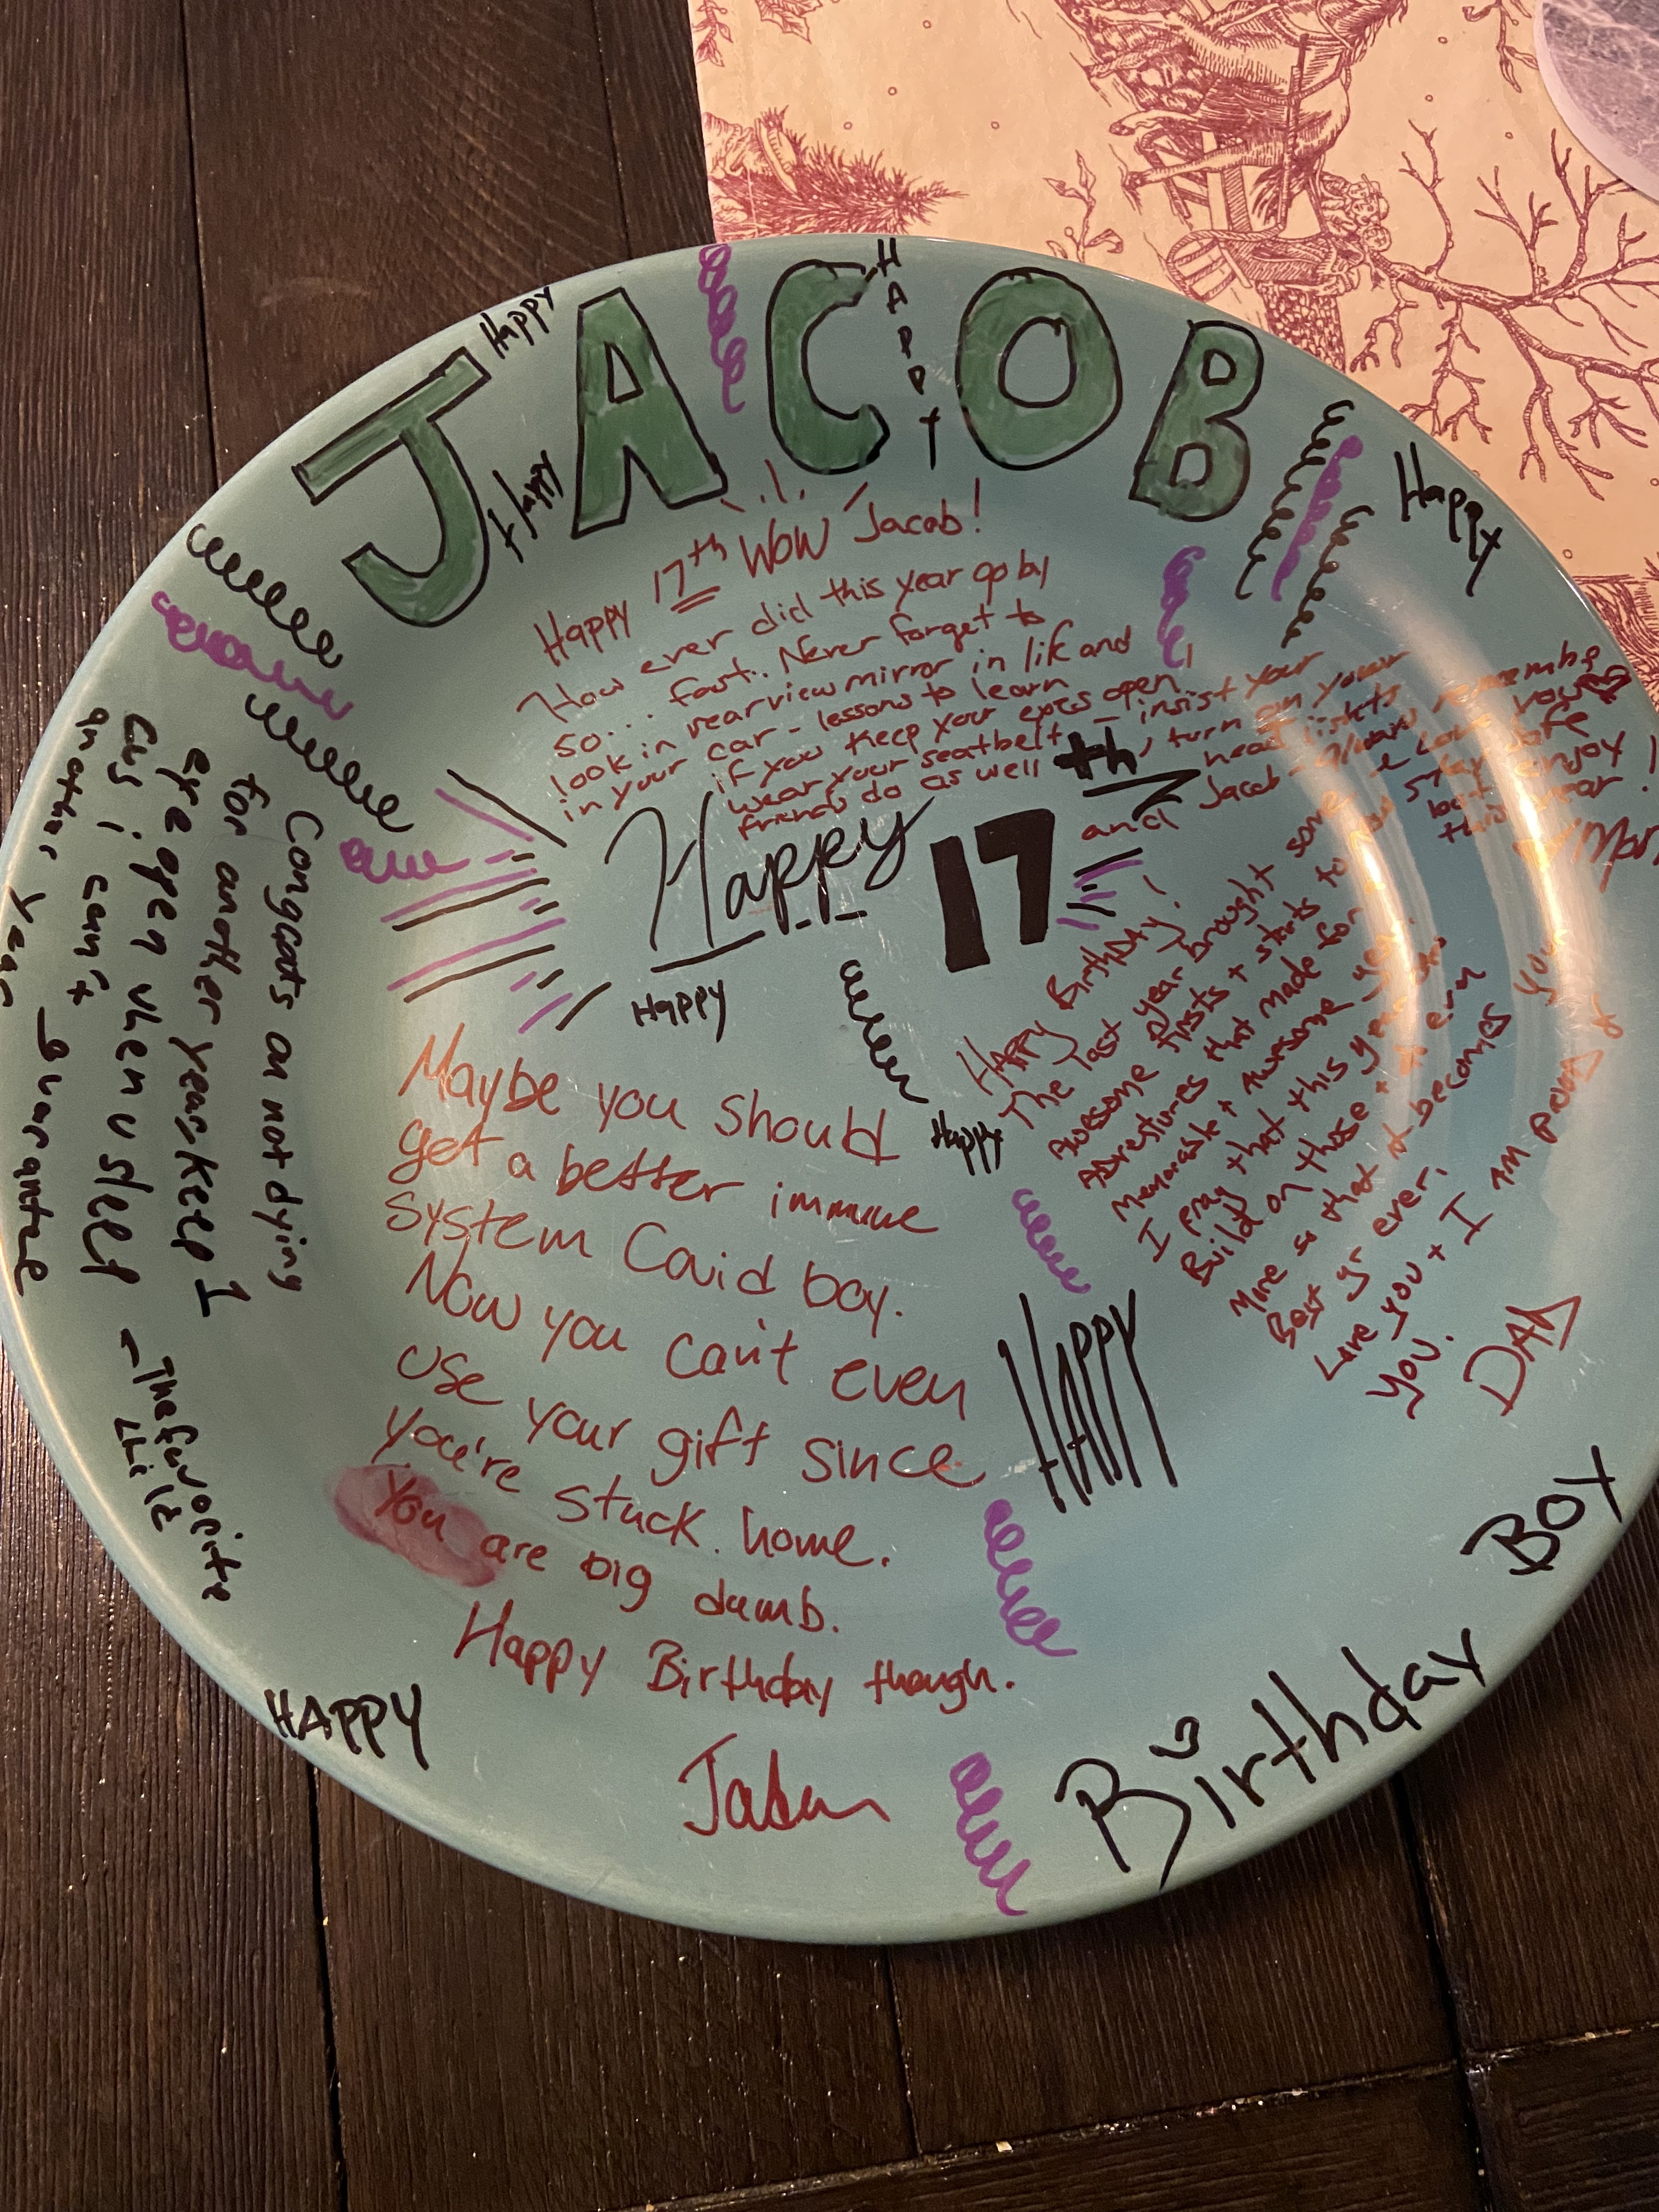 JACOB
Happy
Happy
HAPPY
Happy
Happy 17th WOW Jacob!
How ever did this year go by
so... fast.. Never forget to
look in rearview mirror in life and
in your car - lessons to learn
if you keep your eyes open,
wear your seatbelt - insist your
friends do as well, turn on your
headlights
and Jacob - always remember
I Love you
stay safe
but enjoy
this year!
Mom
Happy 17th
Happy
Happy Birthday!
The last year brought some
awesome firsts + starts to
Adventures that made for a
Memorable + Awesome year.
I pray that this year
Build on those + even
More so that it becomes your
Best yr ever.
Love you + I am proud of
you.
DAD
Happy
HAPPY
Maybe you should
get a better immune
system Covid boy.
Now you can't even
use your gift since
you're stuck home.
You are big dumb.
Happy Birthday though.
Congrats on not dying
for another year, keep 1
eye open when u sleep
cus i can't quarantine
another year
-The favorite
HAPPY
Birthday
BOY